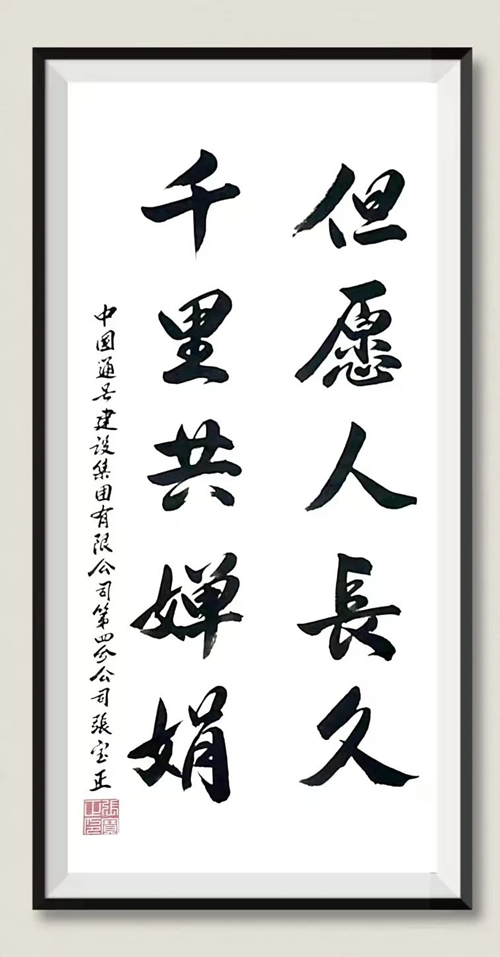 但愿人長久
千里共婵娟
中国通号建设集团有限公司第四分公司張宝正